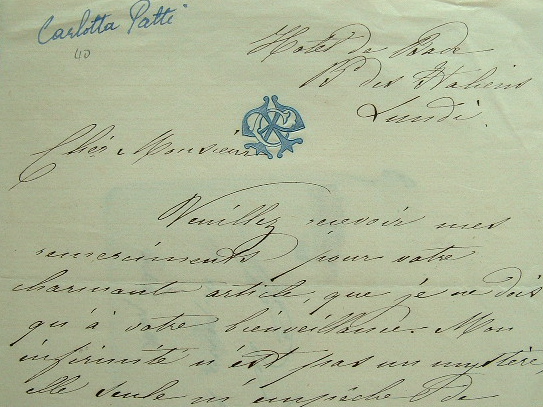 Carlotta Patti
40
Hotel de Bade
Bd des Italiens
Lundi.
Cher Monsieur
Veuillez recevoir mes
remerciments pour votre
charmant article, que je ne dois
qu'à votre bienveillance. Mon
infirmité n'est pas un mystère,
elle seule m'empêche de